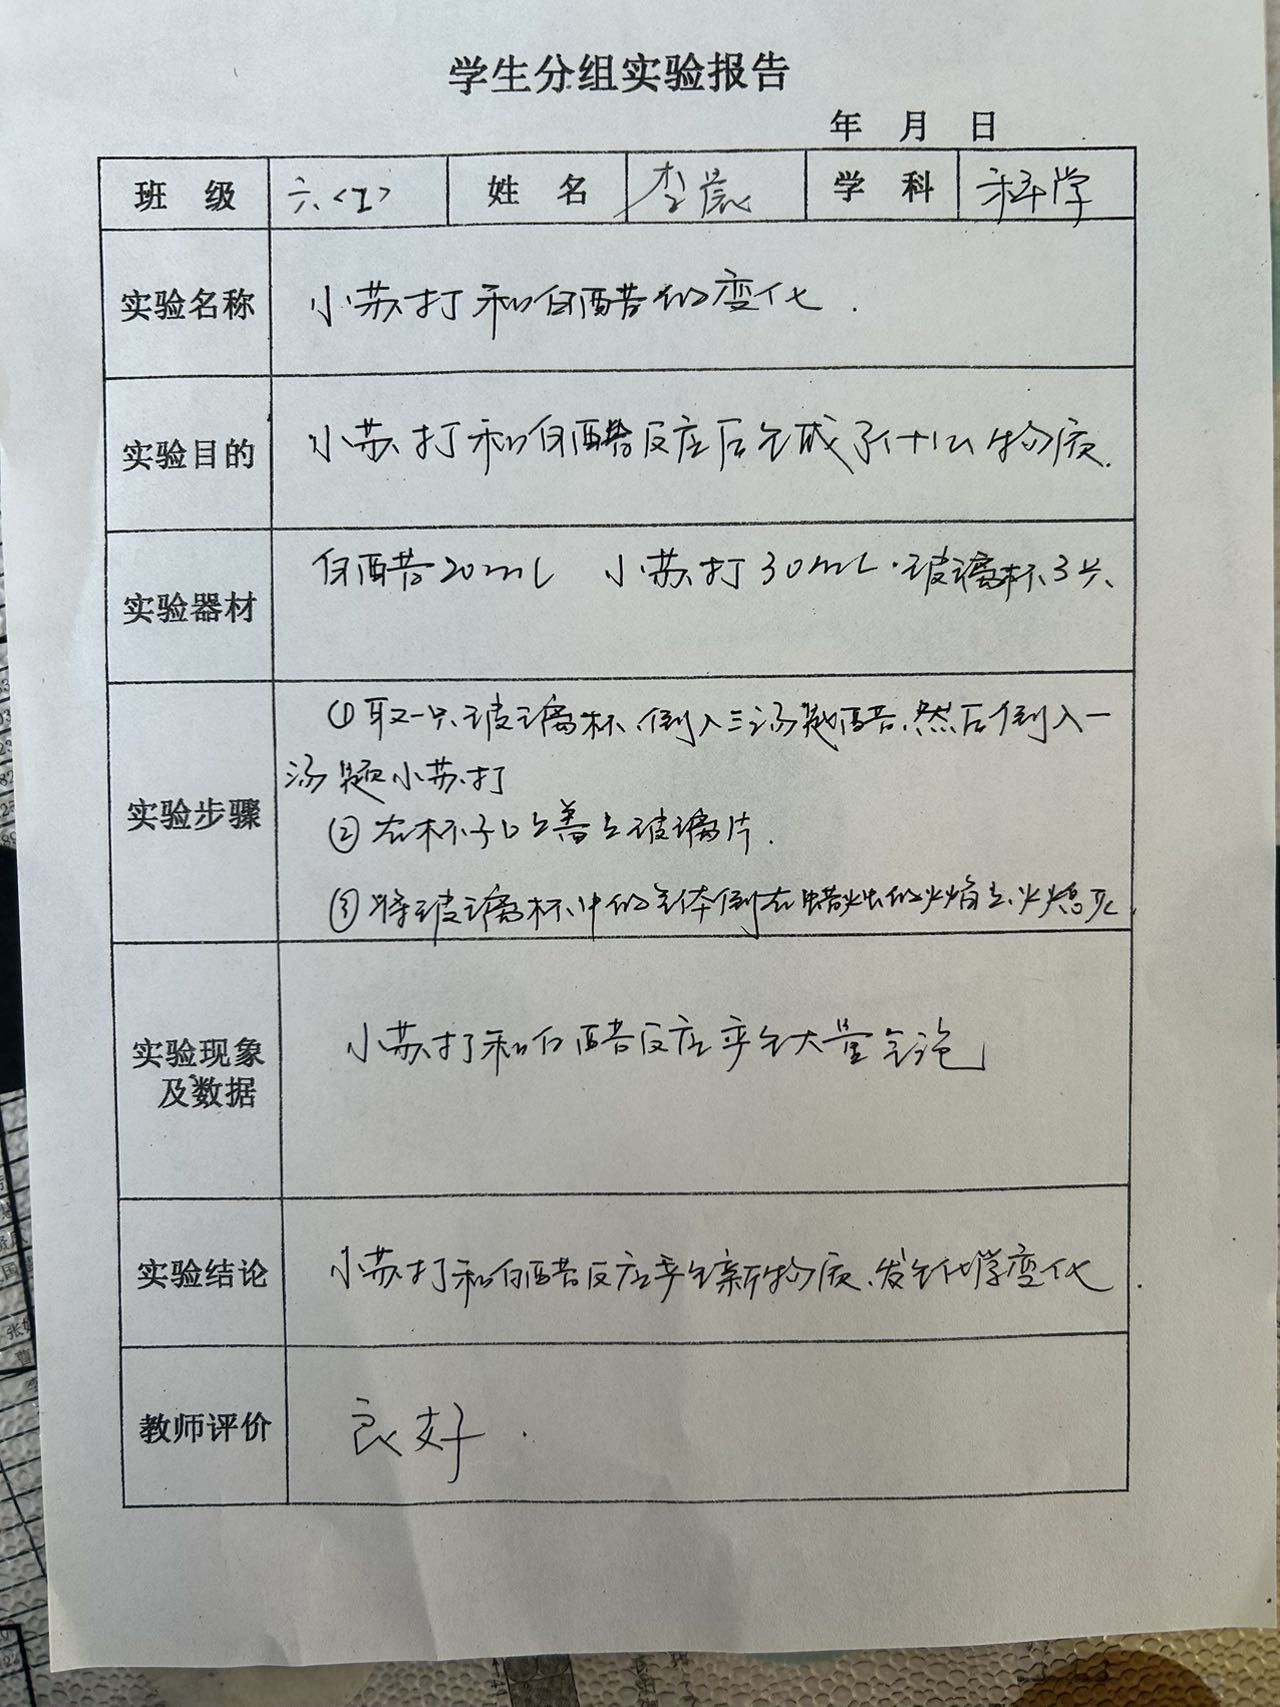 学生分组实验报告
年 月 日
班 级 六<1> 姓 名 李 学 科 科学
实验名称 小苏打和白醋的变化.
实验目的 小苏打和白醋反应后生成了什么物质.
实验器材 白醋20mL 小苏打30mL.玻璃杯3只
实验步骤
①取一只玻璃杯、倒入三汤匙白醋、然后倒入一
汤匙小苏打
②在杯子口上盖上玻璃片.
③将玻璃杯中的气体倒在蜡烛的火焰上、火熄灭.
实验现象
及数据
小苏打和白醋反应产生大量气泡
实验结论 小苏打和白醋反应产生新物质、发生化学变化.
教师评价 良好.